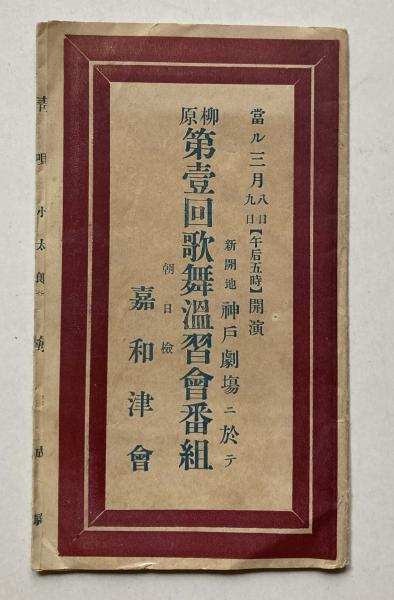 當ル三月八日九日【午后五時】開演
新開地 神戸劇場ニ於テ
柳原
第壹回歌舞溫習會番組
朝日檢
嘉和津會